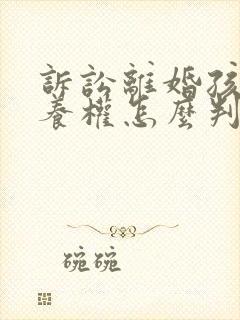 訴訟離婚孩
養權怎麼判
碗碗